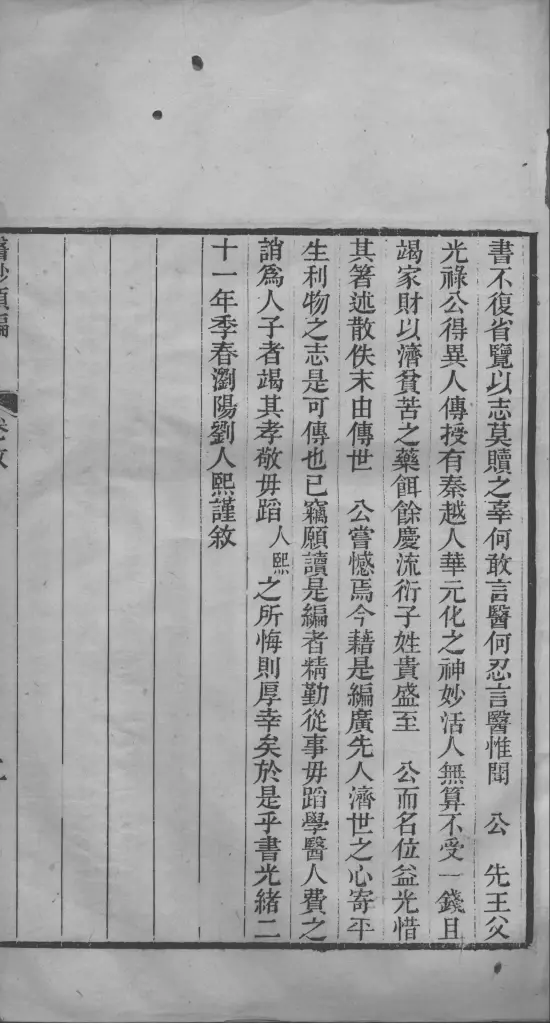 書不復省覽以志莫贖之辜何敢言醫何忍言醫惟聞　公　先王父
光祿公得異人傳授有秦越人華元化之神妙活人無算不受一錢且
竭家財以濟貧苦之藥餌餘慶流衍子姓貴盛至　公而名位益光惜
其箸述散佚末由傳世　公嘗憾焉今藉是編廣先人濟世之心寄平
生利物之志是可傳也已竊願讀是編者精勤從事毋蹈學醫人費之
誚爲人子者竭其孝敬毋蹈人熙之所悔則厚幸矣於是乎書光緒二
十一年季春瀏陽劉人熙謹敘